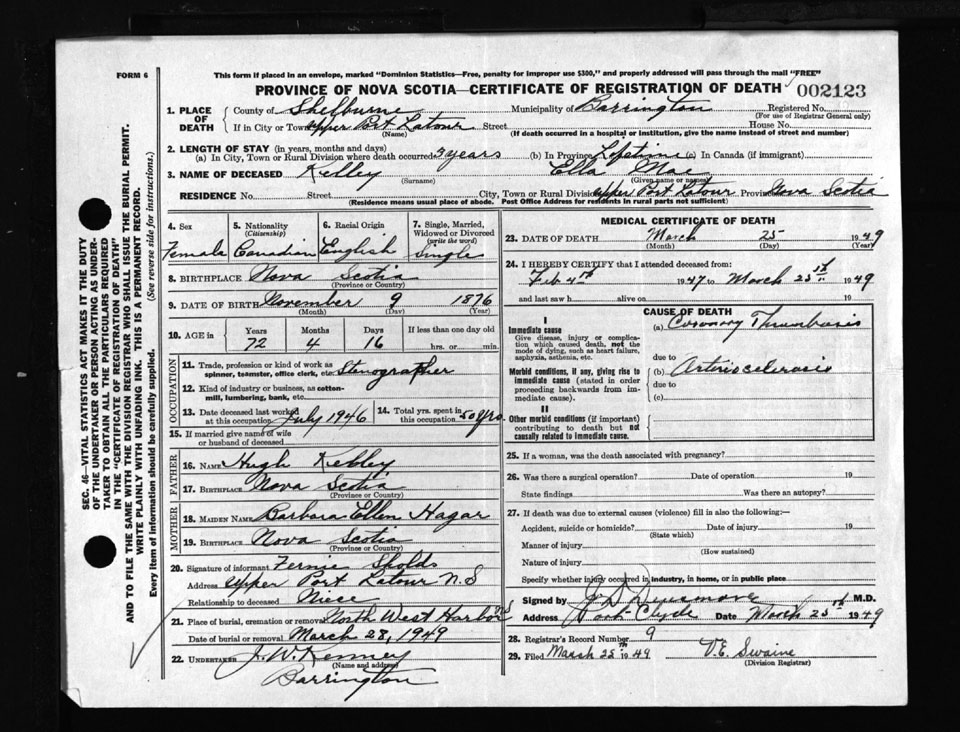 FORM 6
This form if placed in an envelope, marked "Dominion Statistics—Free, penalty for improper use $300," and properly addressed will pass through the mail "FREE"
PROVINCE OF NOVA SCOTIA—CERTIFICATE OF REGISTRATION OF DEATH 002123
1. PLACE OF DEATH
County of Shelburne Municipality of Barrington Registered No.
(For use of Registrar General only)
If in City or Town Upper Port Latour Street House No.
(Name) (If death occurred in a hospital or institution, give the name instead of street and number)
2. LENGTH OF STAY (in years, months and days)
(a) In City, Town or Rural Division where death occurred 3 years (b) In Province Lifetime (c) In Canada (if immigrant)
3. NAME OF DECEASED Kelley Ella Mae
(Surname) (Given name or names)
RESIDENCE No. Street City, Town or Rural Division Upper Port Latour Province Nova Scotia
(Residence means usual place of abode. Post Office Address for residents in rural parts not sufficient)
4. Sex
Female
5. Nationality
(Citizenship)
Canadian
6. Racial Origin
English
7. Single, Married, Widowed or Divorced
(write the word)
Single
8. BIRTHPLACE Nova Scotia
(Province or Country)
9. DATE OF BIRTH November 9 1876
(Month) (Day) (Year)
10. AGE in
Years Months Days If less than one day old
72 4 16 hrs. or min.
OCCUPATION
11. Trade, profession or kind of work as spinner, teamster, office clerk, etc. Stenographer
12. Kind of industry or business, as cotton-mill, lumbering, bank, etc.
13. Date deceased last worked at this occupation July 1946
14. Total yrs. spent in this occupation 50 yrs.
15. If married give name of wife or husband of deceased
FATHER
16. NAME Hugh Kelley
17. BIRTHPLACE Nova Scotia
(Province or Country)
MOTHER
18. MAIDEN NAME Barbara Ellen Hagar
19. BIRTHPLACE Nova Scotia
(Province or Country)
20. Signature of informant Fernie Sholds
Address Upper Port Latour N.S
Relationship to deceased Niece
21. Place of burial, cremation or removal North West Harbor NS
Date of burial or removal March 28, 1949
22. UNDERTAKER J. W. Kenney
(Name and address)
Barrington
MEDICAL CERTIFICATE OF DEATH
23. DATE OF DEATH March 25 1949
(Month) (Day) (Year)
24. I HEREBY CERTIFY that I attended deceased from:
Feb 4th 1947 to March 25th 1949
and last saw h alive on 19
CAUSE OF DEATH
I
Immediate cause
Give disease, injury or complication which caused death, not the mode of dying, such as heart failure, asphyxia, asthenia, etc.
(a) Coronary Thrombosis
due to
Morbid conditions, if any, giving rise to immediate cause (stated in order proceeding backwards from immediate cause).
(b) Arteriosclerosis
due to
(c)
II
Other morbid conditions (if important) contributing to death but not causally related to immediate cause.
25. If a woman, was the death associated with pregnancy?
26. Was there a surgical operation? Date of operation 19
State findings Was there an autopsy?
27. If death was due to external causes (violence) fill in also the following:—
Accident, suicide or homicide? Date of injury 19
(State which)
Manner of injury
(How sustained)
Nature of injury
Specify whether injury occurred in industry, in home, or in public place
Signed by J D Densmore M.D.
Address Port Clyde Date March 25th 1949
28. Registrar's Record Number 9
29. Filed March 25th 1949 V. E. Swaine
(Division Registrar)
SEC. 46—VITAL STATISTICS ACT MAKES IT THE DUTY
OF THE UNDERTAKER OR PERSON ACTING AS UNDER-
TAKER TO OBTAIN ALL THE PARTICULARS REQUIRED
IN THE "CERTIFICATE OF REGISTRATION OF DEATH"
AND TO FILE THE SAME WITH THE DIVISION REGISTRAR WHO SHALL ISSUE THE BURIAL PERMIT.
WRITE PLAINLY WITH UNFADING INK. THIS IS A PERMANENT RECORD.
Every item of information should be carefully supplied. (See reverse side for instructions.)